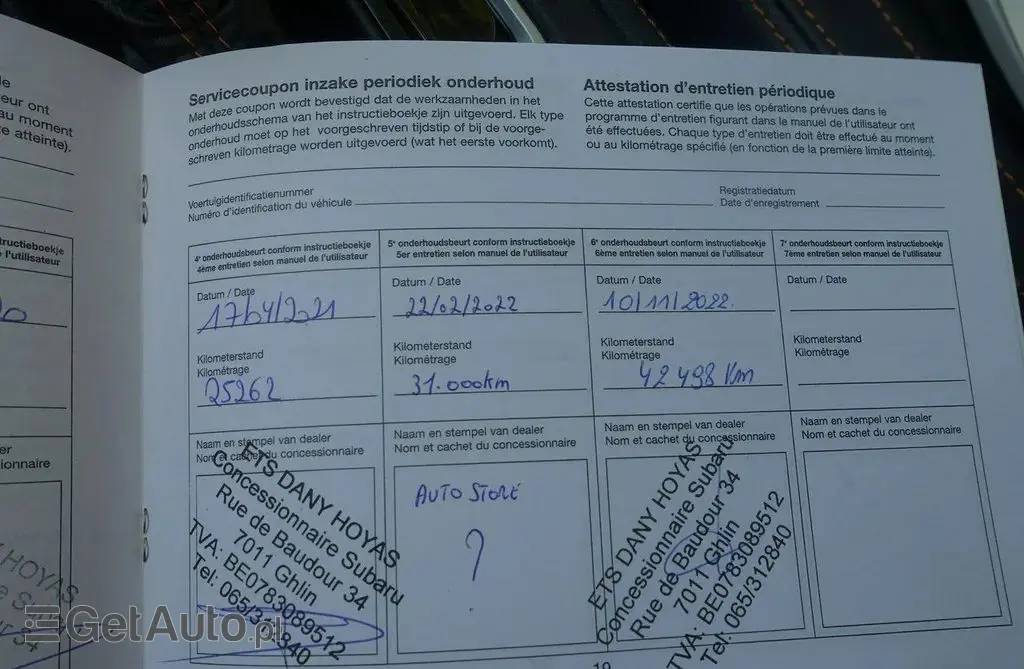 e
eur ont
au moment
te atteinte).
Servicecoupon inzake periodiek onderhoud
Met deze coupon wordt bevestigd dat de werkzaamheden in het
onderhoudsschema van het instructieboekje zijn uitgevoerd. Elk type
onderhoud moet op het voorgeschreven tijdstip of bij de voorge-
schreven kilometrage worden uitgevoerd (wat het eerste voorkomt).
Attestation d'entretien périodique
Cette attestation certifie que les opérations prévues dans le
programme d'entretien figurant dans le manuel de l'utilisateur ont
été effectuées. Chaque type d'entretien doit être effectué au moment
ou au kilométrage spécifié (en fonction de la première limite atteinte).
Voertuigidentificatienummer
Numéro d'identification du véhicule
Registratiedatum
Date d'enregistrement
tructieboekje
l'utilisateur
4e onderhoudsbeurt conform instructieboekje
4ème entretien selon manuel de l'utilisateur
Datum / Date
17/04/2021
Kilometerstand
Kilométrage
25262
Naam en stempel van dealer
Nom et cachet du concessionnaire
ETS DANY HOYAS
Concessionnaire Subaru
Rue de Baudour 34
7011 Ghlin
TVA: BE0783089512
Tel: 065/312840
5e onderhoudsbeurt conform instructieboekje
5er entretien selon manuel de l'utilisateur
Datum / Date
22/02/2022
Kilometerstand
Kilométrage
31.000km
Naam en stempel van dealer
Nom et cachet du concessionnaire
AUTO STORE
?
6e onderhoudsbeurt conform instructieboekje
6ème entretien selon manuel de l'utilisateur
Datum / Date
10/11/2022.
Kilometerstand
Kilométrage
42498 Km
Naam en stempel van dealer
Nom et cachet du concessionnaire
ETS DANY HOYAS
Concessionnaire Subaru
Rue de Baudour 34
7011 Ghlin
TVA: BE0783089512
Tel: 065/312840
7e onderhoudsbeurt conform instructieboekje
7ème entretien selon manuel de l'utilisateur
Datum / Date
Kilometerstand
Kilométrage
Naam en stempel van dealer
Nom et cachet du concessionnaire
er
sionnaire
HOYAS
GetAuto.pl
19